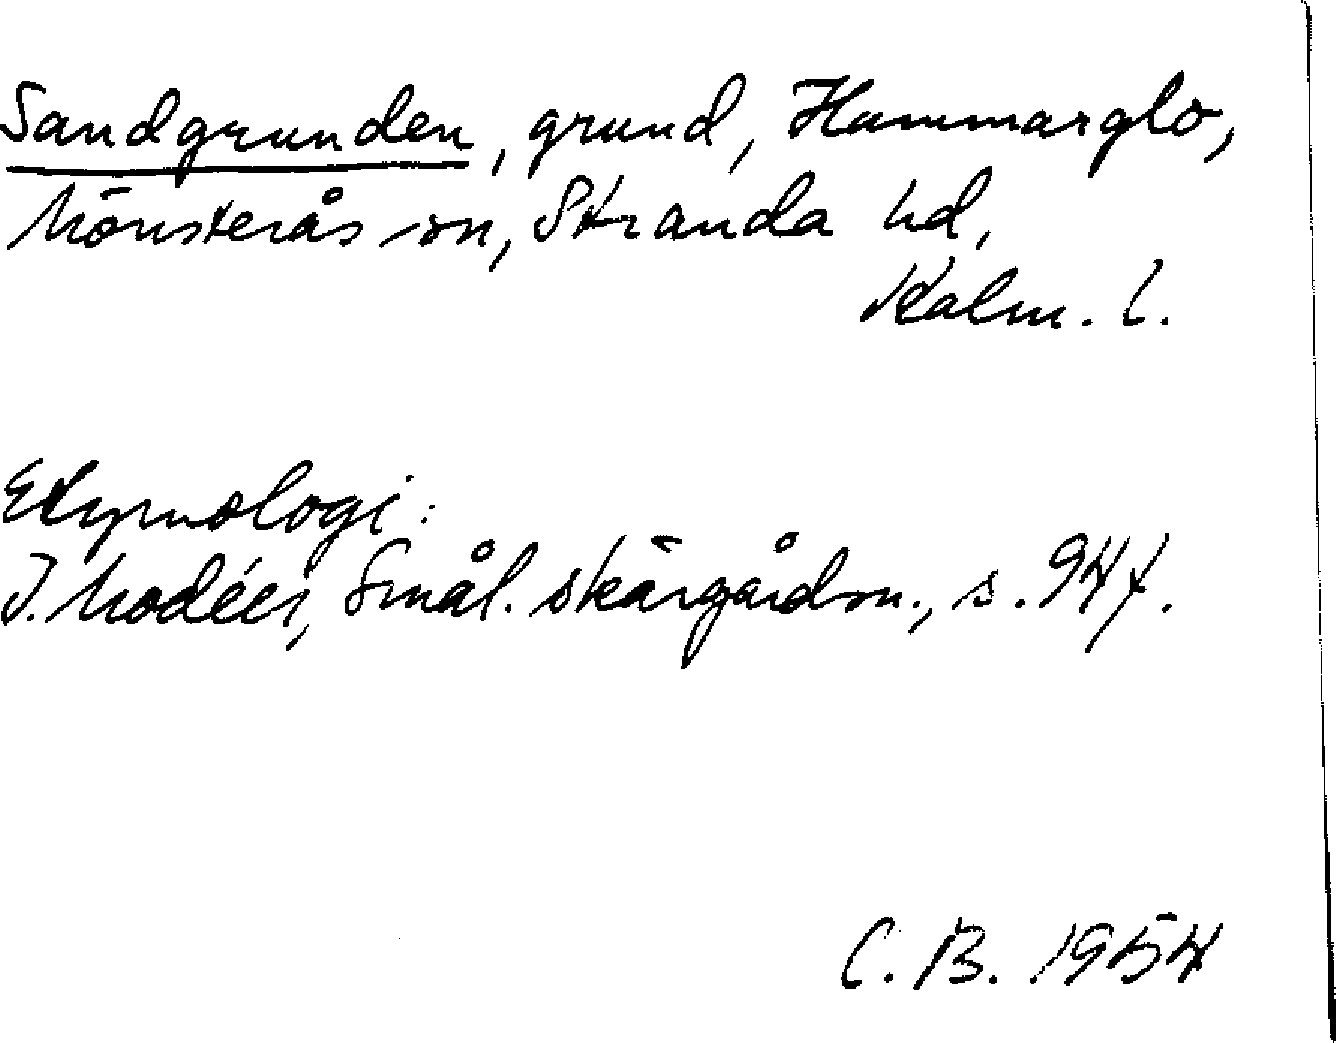 Sandgrunden, grund, Hammarglo,
Mönsterås sn, Stranda hd,
Kalm. l.
Etymologi:
I. Modéer, Smål. skärgårdsn., s. 94 f.
C. B. 1954